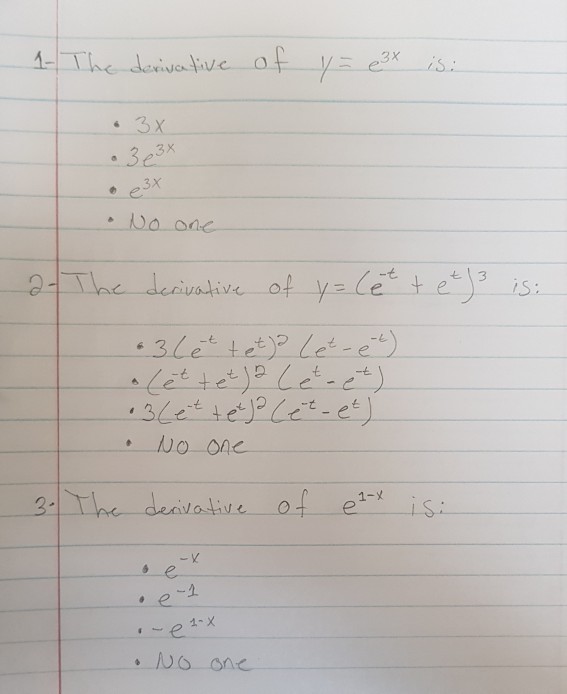 1- The derivative of y = e^3x is:
• 3x
• 3e^3x
• e^3x
• No one
2- The derivative of y = (e^-t + e^t)^3 is:
• 3(e^-t + e^t)^2 (e^t - e^-t)
• (e^-t + e^t)^2 (e^t - e^-t)
• 3(e^-t + e^t)^2 (e^-t - e^t)
• No one
3- The derivative of e^1-x is:
• e^-x
• e^-1
• -e^1-x
• No one